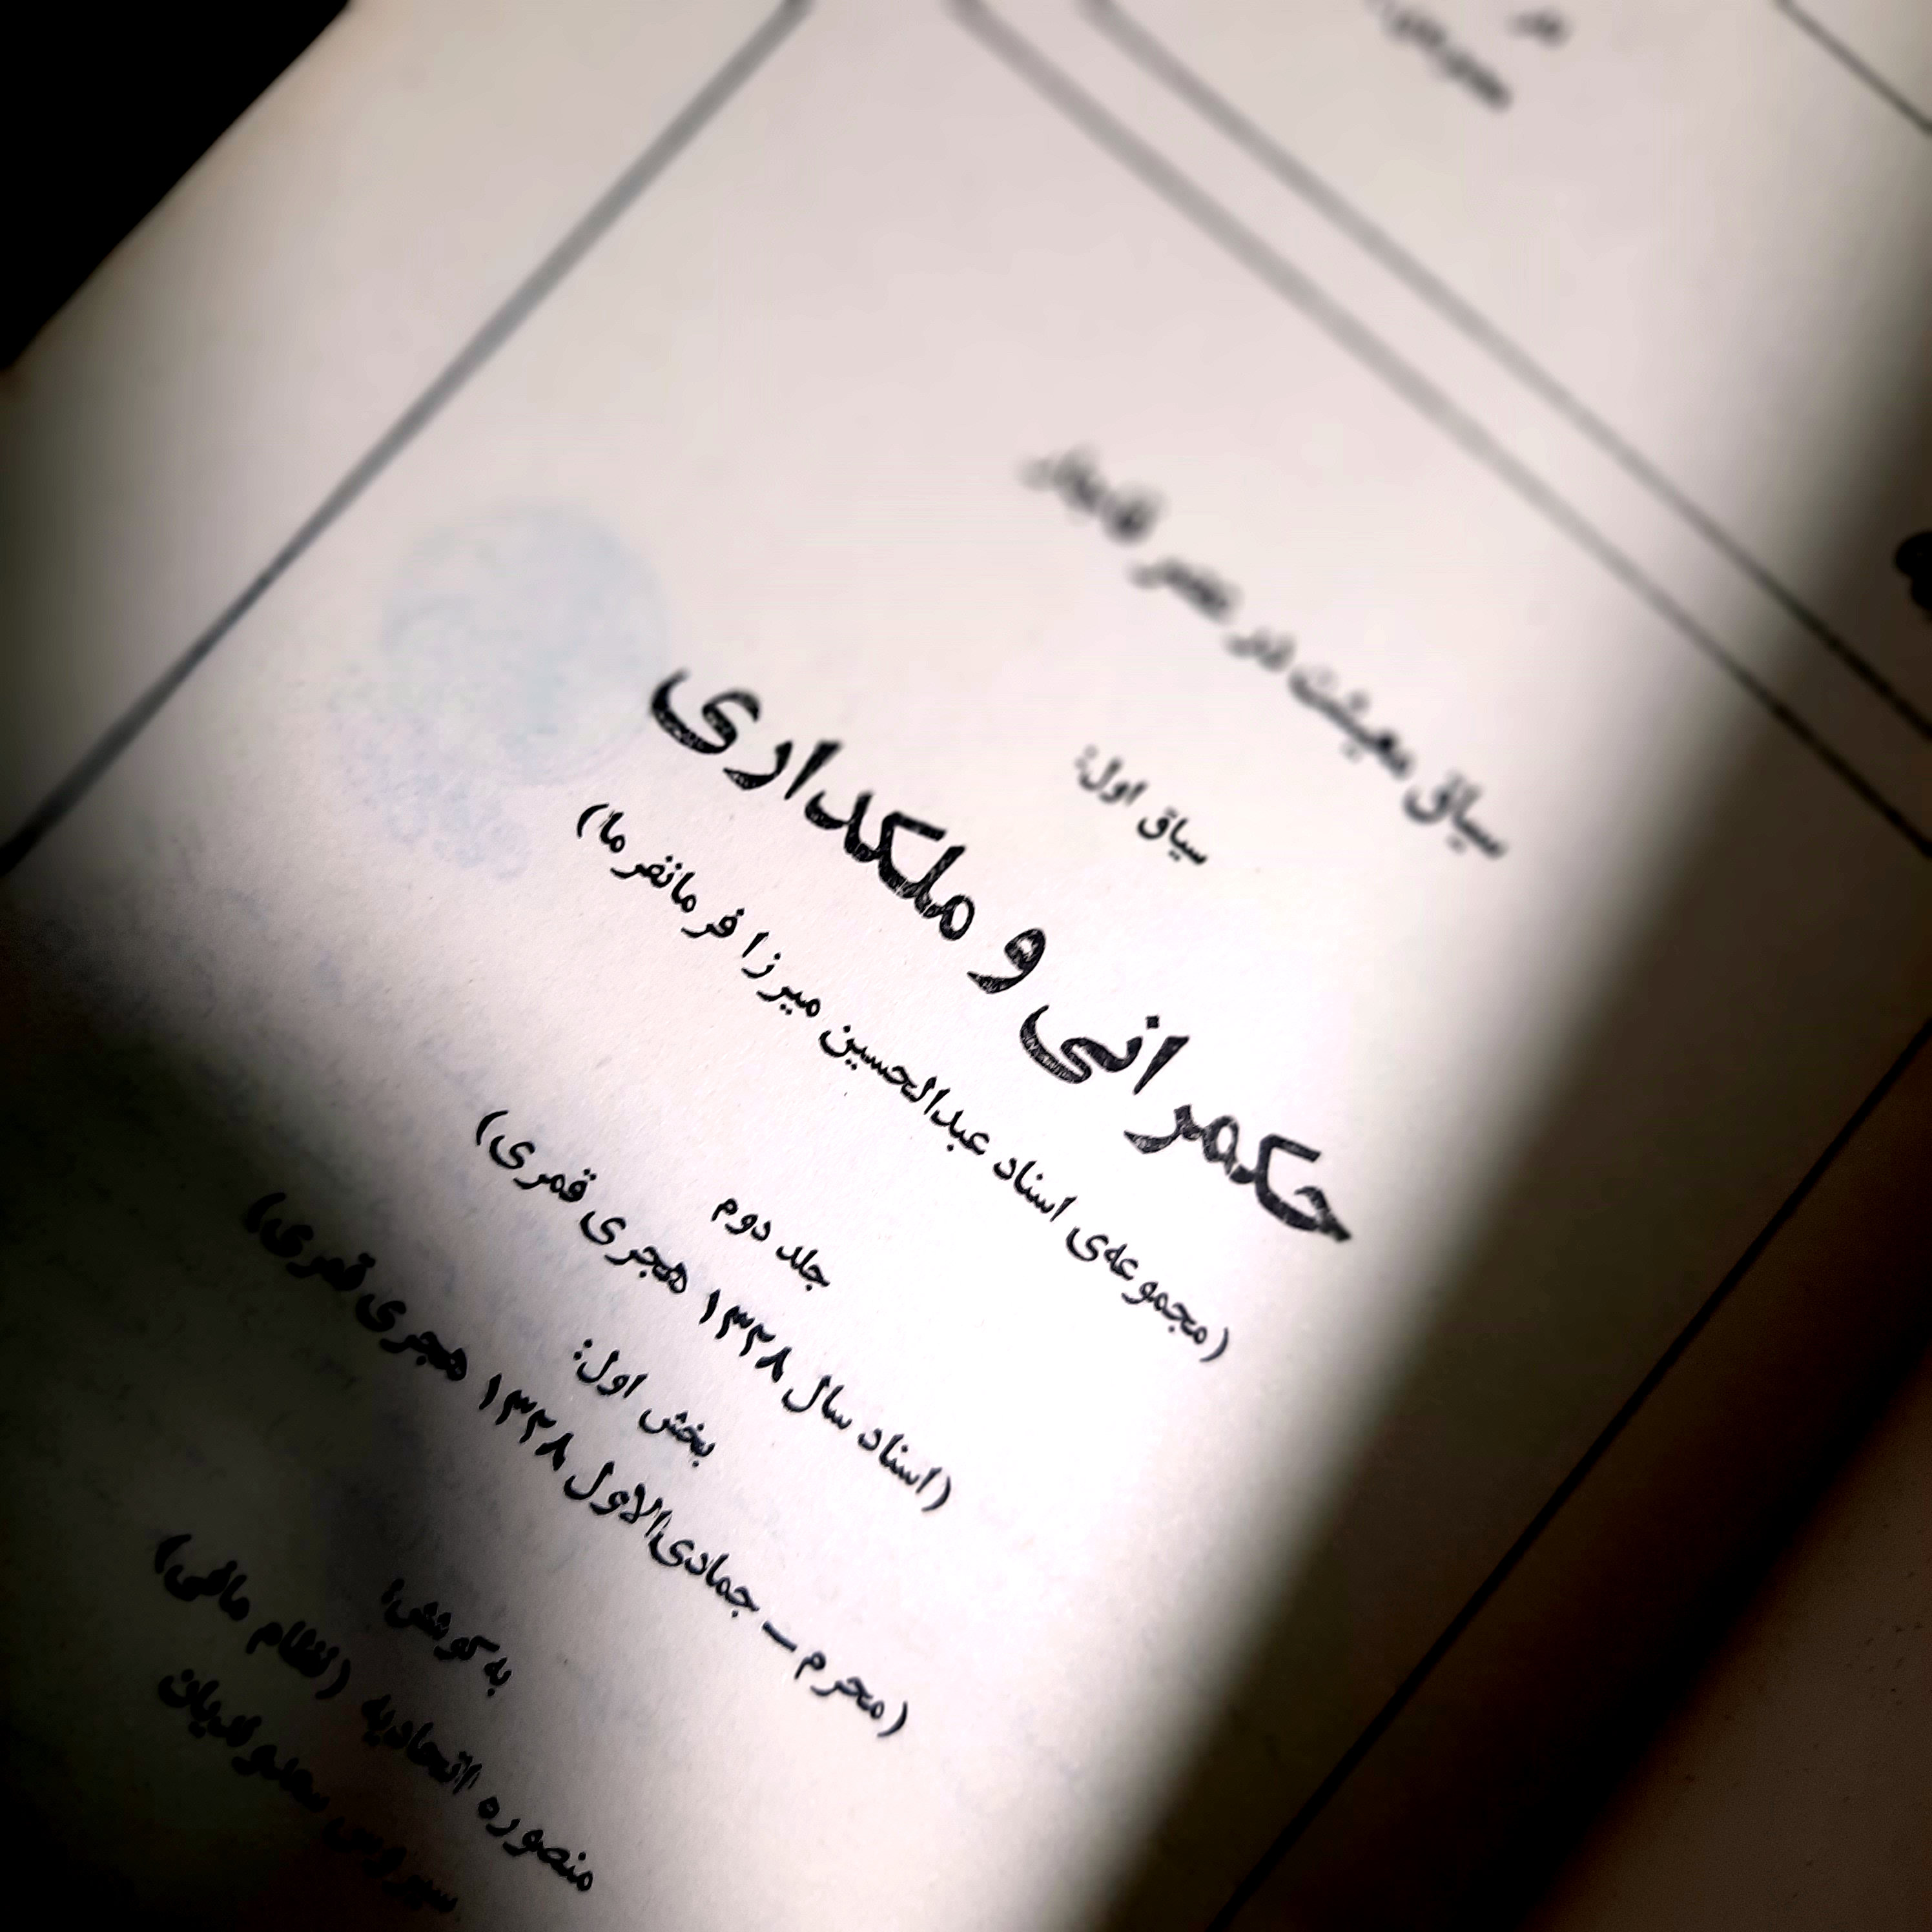 سیاق معیشت در عصر قاجار
سیاق اول:
حکمرانی و ملکداری
(مجموعه‌ی اسناد عبدالحسین میرزا فرمانفرما)
جلد دوم
(اسناد سال ۱۳۲۸ هجری قمری)
بخش اول:
(محرم – جمادی‌الاول ۱۳۲۸ هجری قمری)
به‌کوشش:
منصوره اتحادیه (نظام مافی)
سیروس سعدوندیان